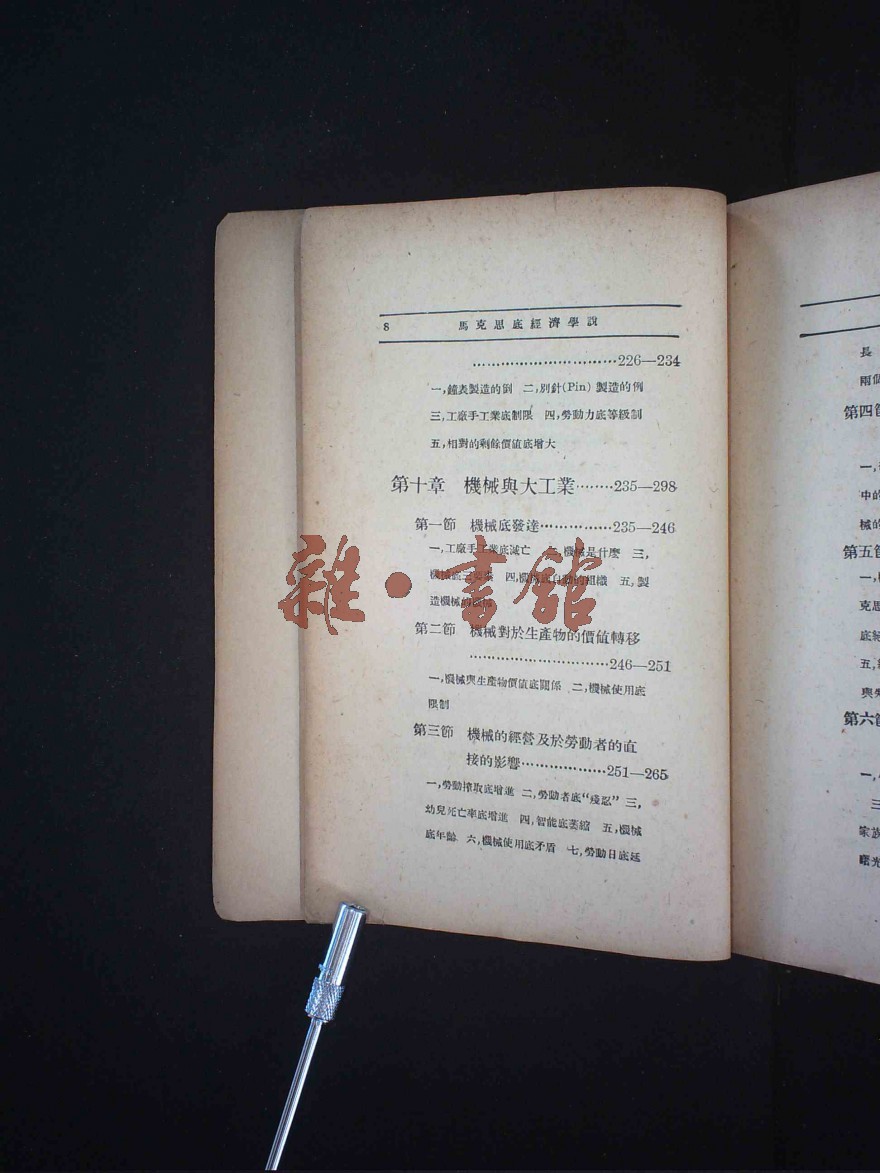 8 馬克思底經濟學說
……………………………226—234
一,鐘表製造的例 二,別針(Pin)製造的例
三,工廠手工業底制限 四,勞動力底等級制
五,相對的剩餘價值底增大
第十章 機械與大工業………235—298
第一節 機械底發達……………235—246
一,工廠手工業底滅亡 二,機械是什麼 三,
機械底三要素 四,機械底自動的組織 五,製
造機械的機械
第二節 機械對於生產物的價值轉移
…………………………246—251
一,機械與生產物價值底關係 二,機械使用底
限制
第三節 機械的經營及於勞動者的直
接的影響………………251—265
一,勞動搾取底增進 二,勞動者底“殘忍” 三,
幼兒死亡率底增進 四,智能底萎縮 五,機械
底年齡 六,機械使用底矛盾 七,勞動日底延
雜·書館
長
兩個
第四節
一,
中的
械的
第五節
一,
克思
底
五,
與
第六節
一,
三
家族
曙光